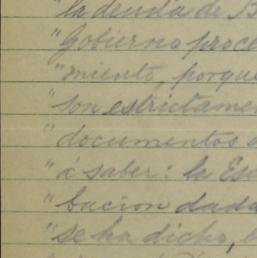 "la deuda de B
"Gobierno proce
"miento, porque
"son estrictame
"documentos
"á saber: la Es
"bacion dada
"se ha dicho, e